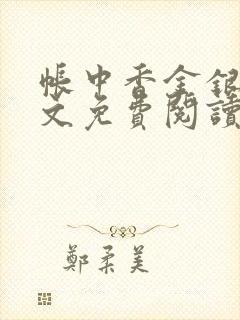 帳中香金銀
文免費閱讀
鄭柔美